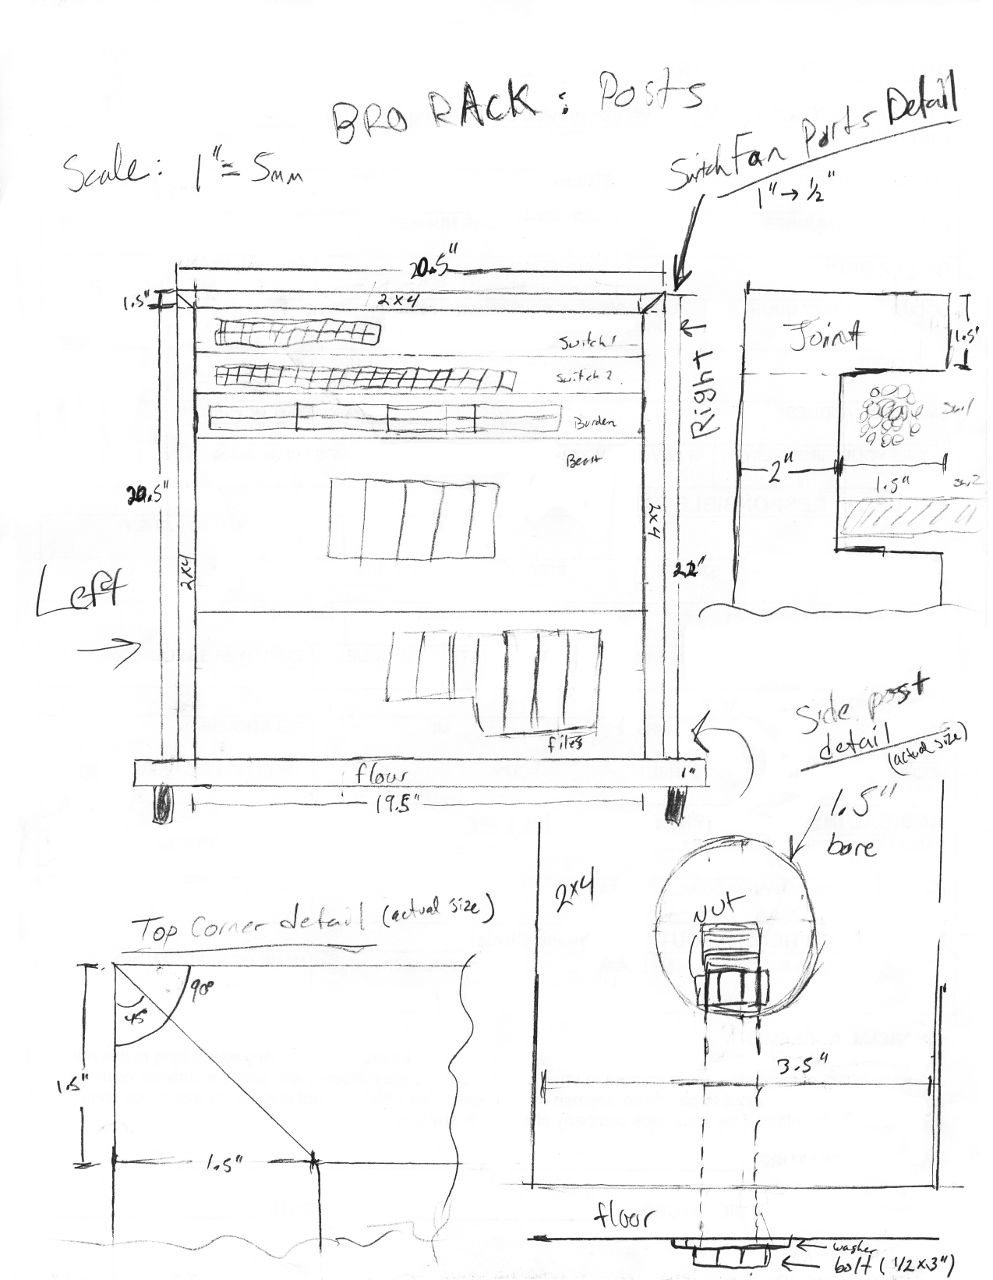 BRO RACK: Posts
Scale: 1" = 5mm
Switch Fan Ports Detail
1" → 1/2"
20.5"
1.5"
2x4
Switch 1
Switch 2
Burden
Beast
Right →
20.5"
2x4
2x4
22"
Left
→
files
floor
1"
19.5"
Joint
1.5"
Sw1
2"
1.5"
Sw2
Side post
detail
(actual size)
1.5"
bore
2x4
NUT
3.5"
floor
washer
bolt (1/2 x 3")
Top Corner detail (actual size)
90°
45°
1.5"
1.5"